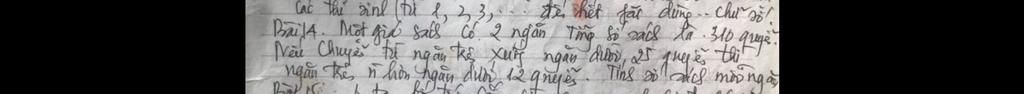 Các thí sinh từ 1, 2, 3, ... đến hết phải dùng .. chữ số?
Bài 14. Một giá sách có 2 ngăn Tổng số sách là 310 quyển.
Nếu chuyển từ ngăn trên xuống ngăn dưới 25 quyển thì
ngăn trên ít hơn ngăn dưới 12 quyển. Tính số sách mỗi ngăn